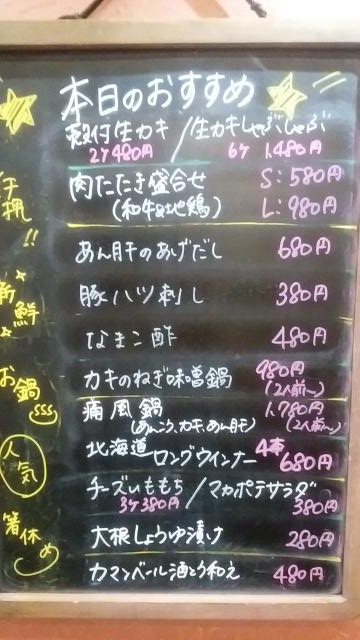 本日のおすすめ
殻付生カキ / 生カキしゃぶしゃぶ
2ケ480円 6ケ 1.480円
肉たたき盛合せ S:580円
(和牛&地鶏) L:980円
!!
あん肝のあげだし 680円
豚ハツ刺し 380円
新鮮
なまこ酢 480円
お鍋
カキのねぎ味噌鍋 980円
(2人前〜)
痛風鍋 1.780円
(あんこう、カキ、あん肝) (2人前〜)
人気
北海道ロングウインナー 4本 680円
チーズいももち / マカポテサラダ
3ケ380円 380円
箸休め
大根しょうゆ漬け 280円
カマンベール酒とう和え 480円